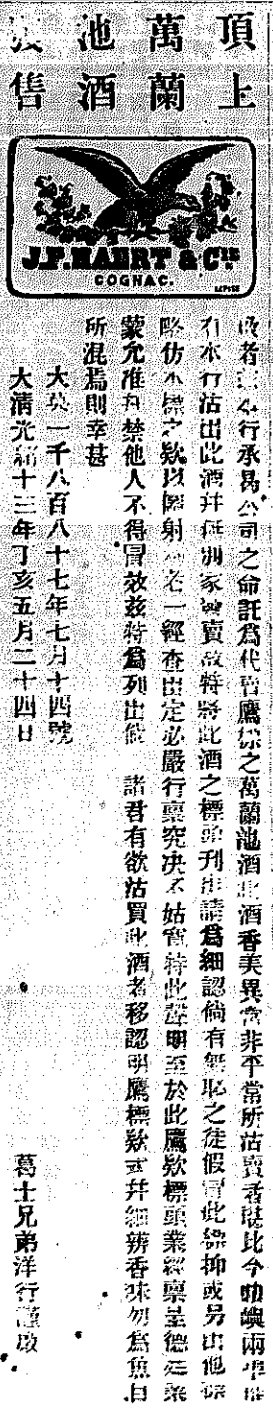 頂上
萬蘭
池酒
發售
J.F. HAERT & CIE
COGNAC.
啟者本行承易公司之命託為代嘗鷹標之萬蘭池酒此酒香美異常非平常所沽賣者堪比今
有本行沽出此酒并無別家發賣故特將此酒之標頭刊出請為細認倘有無恥之徒假冒此標抑或另出他標
略仿本標之欵以圖射 者一經查出定必嚴行稟究决不姑寬特此聲明至於此鷹欵標頭業經稟呈德
蒙允准存禁他人不得冒效茲特為列出俾 諸君有欲沽買此酒者移認明鷹標欵式并細辨香味勿為魚目
所混焉則幸甚
大英一千八百八十七年七月十四號
大清光緒十三年丁亥五月二十四日
葛士兄弟洋行謹啟